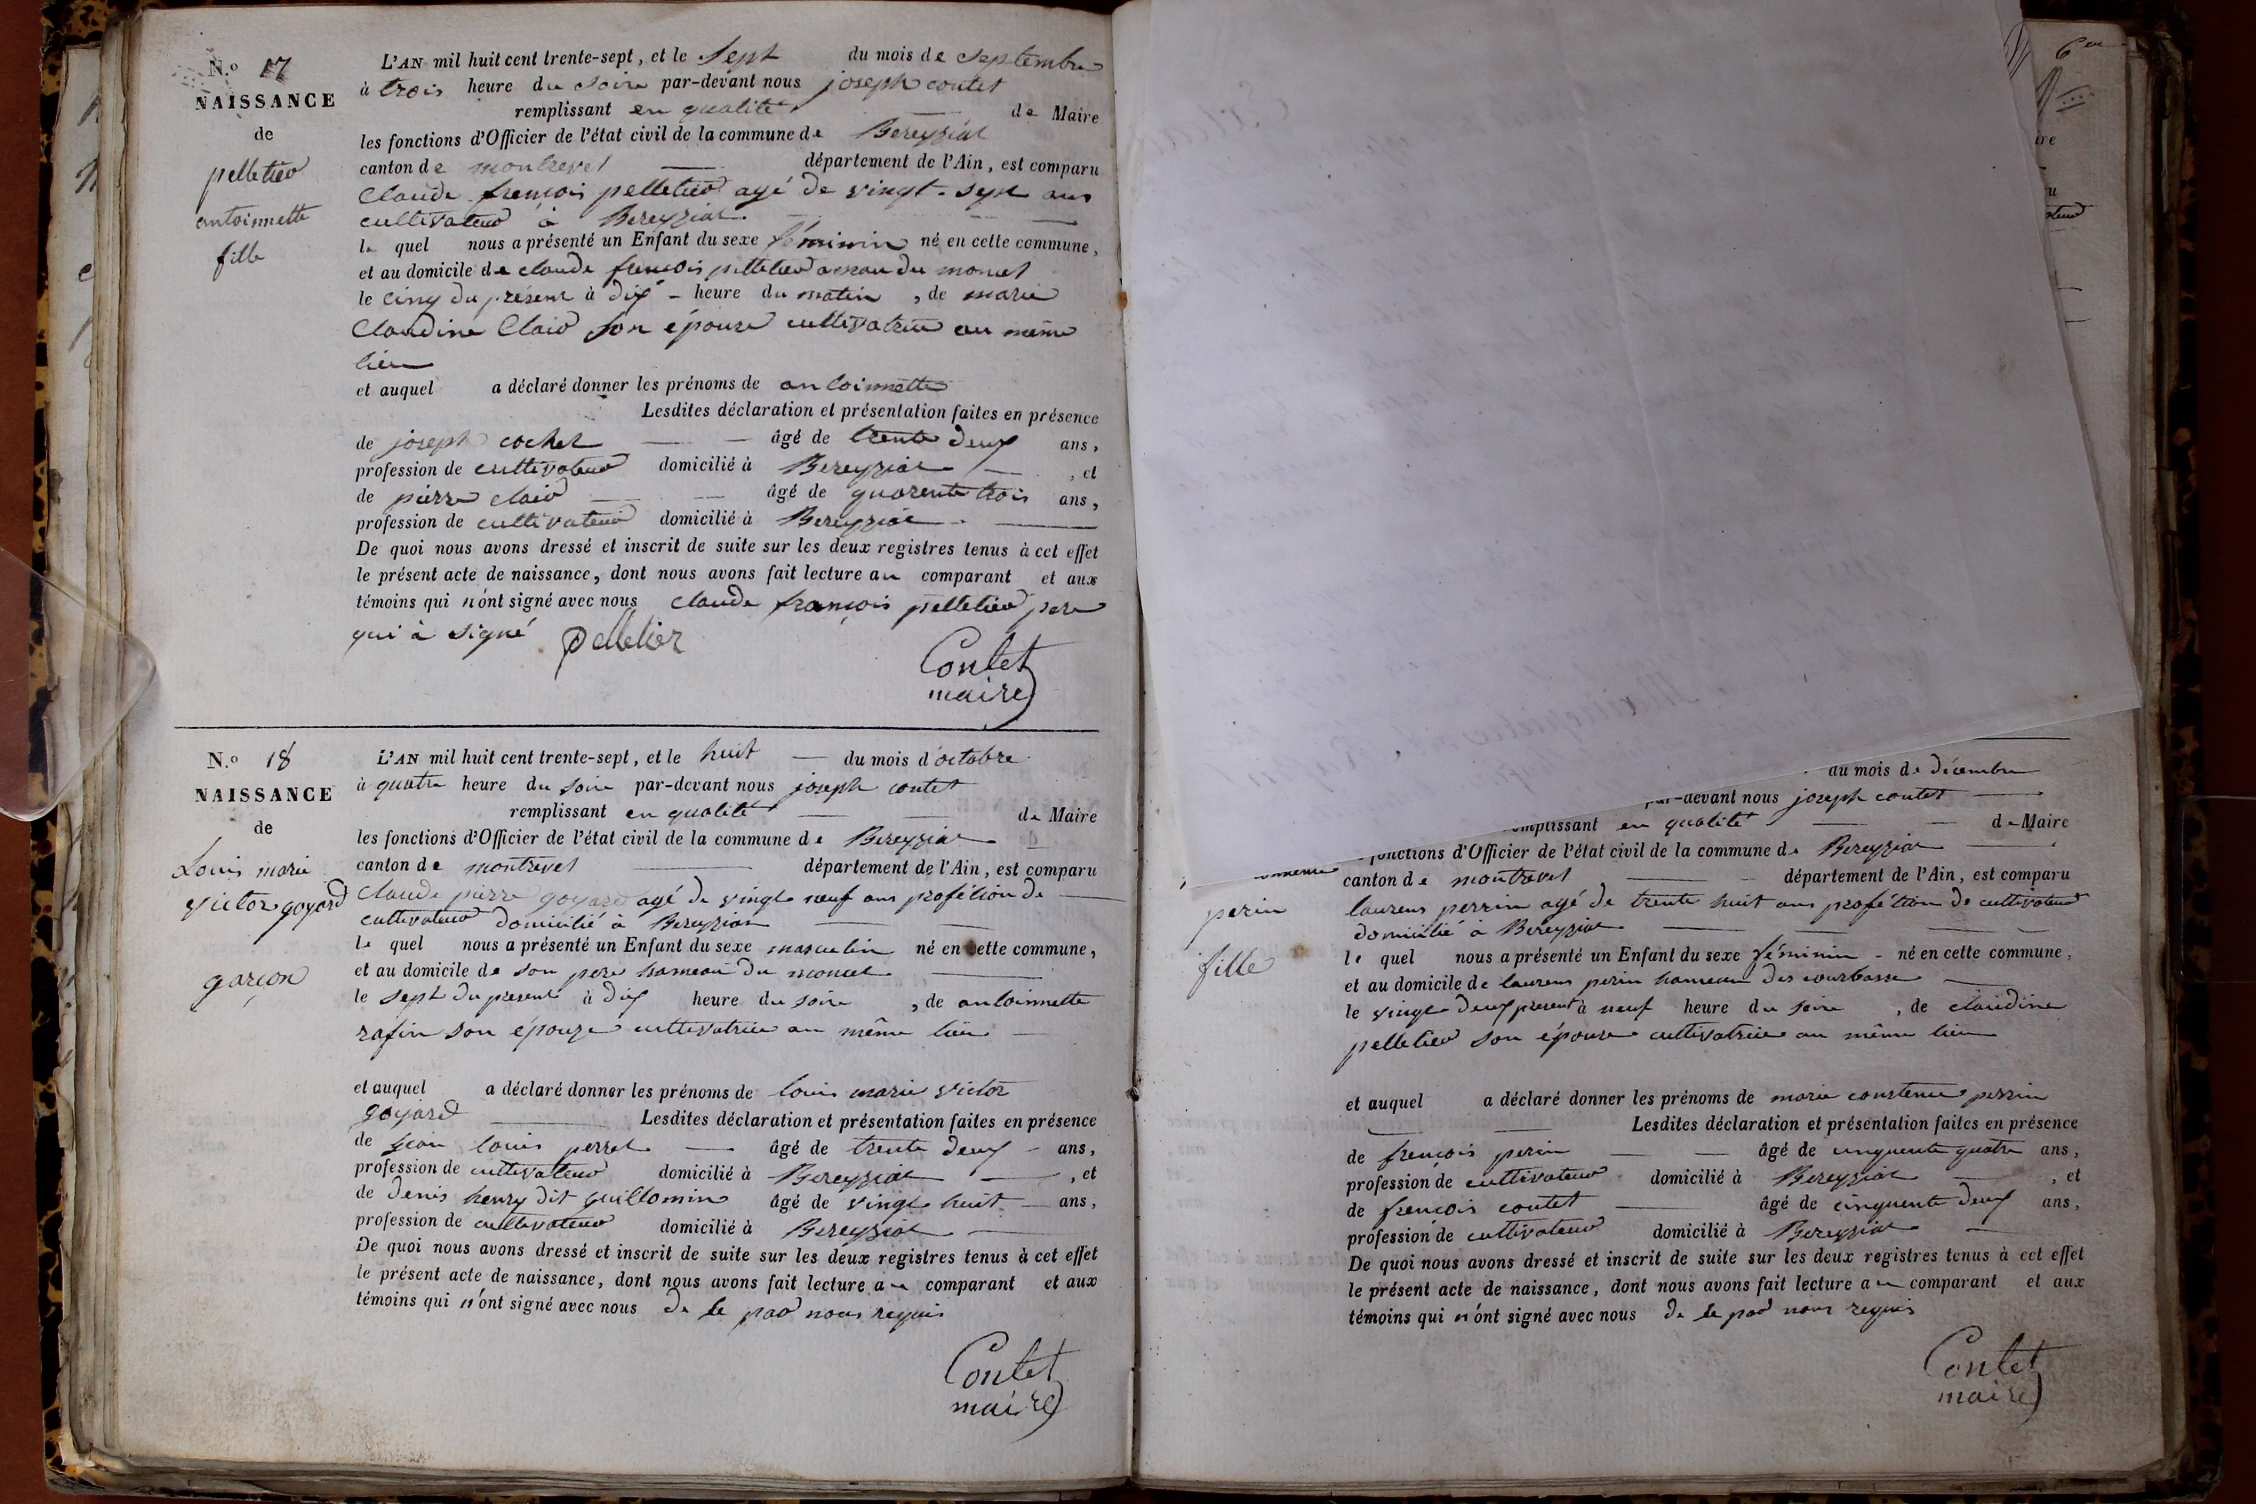 N.o 17
NAISSANCE
de
pelletier
antoinnette
fille
L'AN mil huit cent trente-sept, et le sept du mois de septembre
à trois heure du soire par-devant nous joseph contet
remplissant en qualité de Maire
les fonctions d'Officier de l'état civil de la commune de Bereyziat
canton de montrevel département de l'Ain, est comparu
Claude françois pelletier agé de vingt-sept ans
cultivateur à Bereyziat
le quel nous a présenté un Enfant du sexe féminin né en cette commune,
et au domicile de claude françois pelletier amau du moncel
le cinq du présent à dix heure du matin, de marie
Claudine Claid son épouze cultivatrice au même
lieu
et auquel a déclaré donner les prénoms de antoinnette
Lesdites déclaration et présentation faites en présence
de joseph cochet âgé de trente deux ans,
profession de cultivateur domicilié à Bereyziat, et
de pierre claid âgé de quarente trois ans,
profession de cultivateur domicilié à Bereyziat
De quoi nous avons dressé et inscrit de suite sur les deux registres tenus à cet effet
le présent acte de naissance, dont nous avons fait lecture au comparant et aux
témoins qui n'ont signé avec nous claude françois pelletier pere
qui à signé pelletier
Contet
maire
N.o 18
NAISSANCE
de
Louis marie
victor goyard
garçon
L'AN mil huit cent trente-sept, et le huit du mois d'octobre
à quatre heure du soire par-devant nous joseph contet
remplissant en qualité de Maire
les fonctions d'Officier de l'état civil de la commune de Bereyziat
canton de montrevel département de l'Ain, est comparu
Claude pierre goyard agé de vingt neuf ans profétion de
cultivateur domicilié à Bereyziat
le quel nous a présenté un Enfant du sexe masculin né en cette commune,
et au domicile de son pere hameau du moncel
le sept du present à dix heure du soire, de antoinnette
rafin son épouze cultivatrice au même lieu
et auquel a déclaré donner les prénoms de louis marie victor
goyard Lesdites déclaration et présentation faites en présence
de jean louis perret âgé de trente deux ans,
profession de cultivateur domicilié à Bereyziat, et
de denis henry dit guillomin âgé de vingt huit ans,
profession de cultivateur domicilié à Bereyziat
De quoi nous avons dressé et inscrit de suite sur les deux registres tenus à cet effet
le présent acte de naissance, dont nous avons fait lecture au comparant et aux
témoins qui n'ont signé avec nous de le par nous requis
Contet
maire
perin
fille
du mois de décembre
par-devant nous joseph contet
remplissant en qualité de Maire
fonctions d'Officier de l'état civil de la commune de Bereyziat
canton de montrevel département de l'Ain, est comparu
laurens perrin agé de trente huit ans profétion de cultivateur
domicilié à Bereyziat
le quel nous a présenté un Enfant du sexe féminin né en cette commune,
et au domicile de laurens perin hameau des courbasse
le vingt deux present à neuf heure du soire, de claudine
pelletier son épouze cultivatrice au même lieu
et auquel a déclaré donner les prénoms de marie constence perrin
Lesdites déclaration et présentation faites en présence
de françois perin âgé de cinquente quatre ans,
profession de cultivateur domicilié à Bereyziat, et
de françois contet âgé de cinquente deux ans,
profession de cultivateur domicilié à Bereyziat
De quoi nous avons dressé et inscrit de suite sur les deux registres tenus à cet effet
le présent acte de naissance, dont nous avons fait lecture au comparant et aux
témoins qui n'ont signé avec nous de le par nous requis
Contet
maire